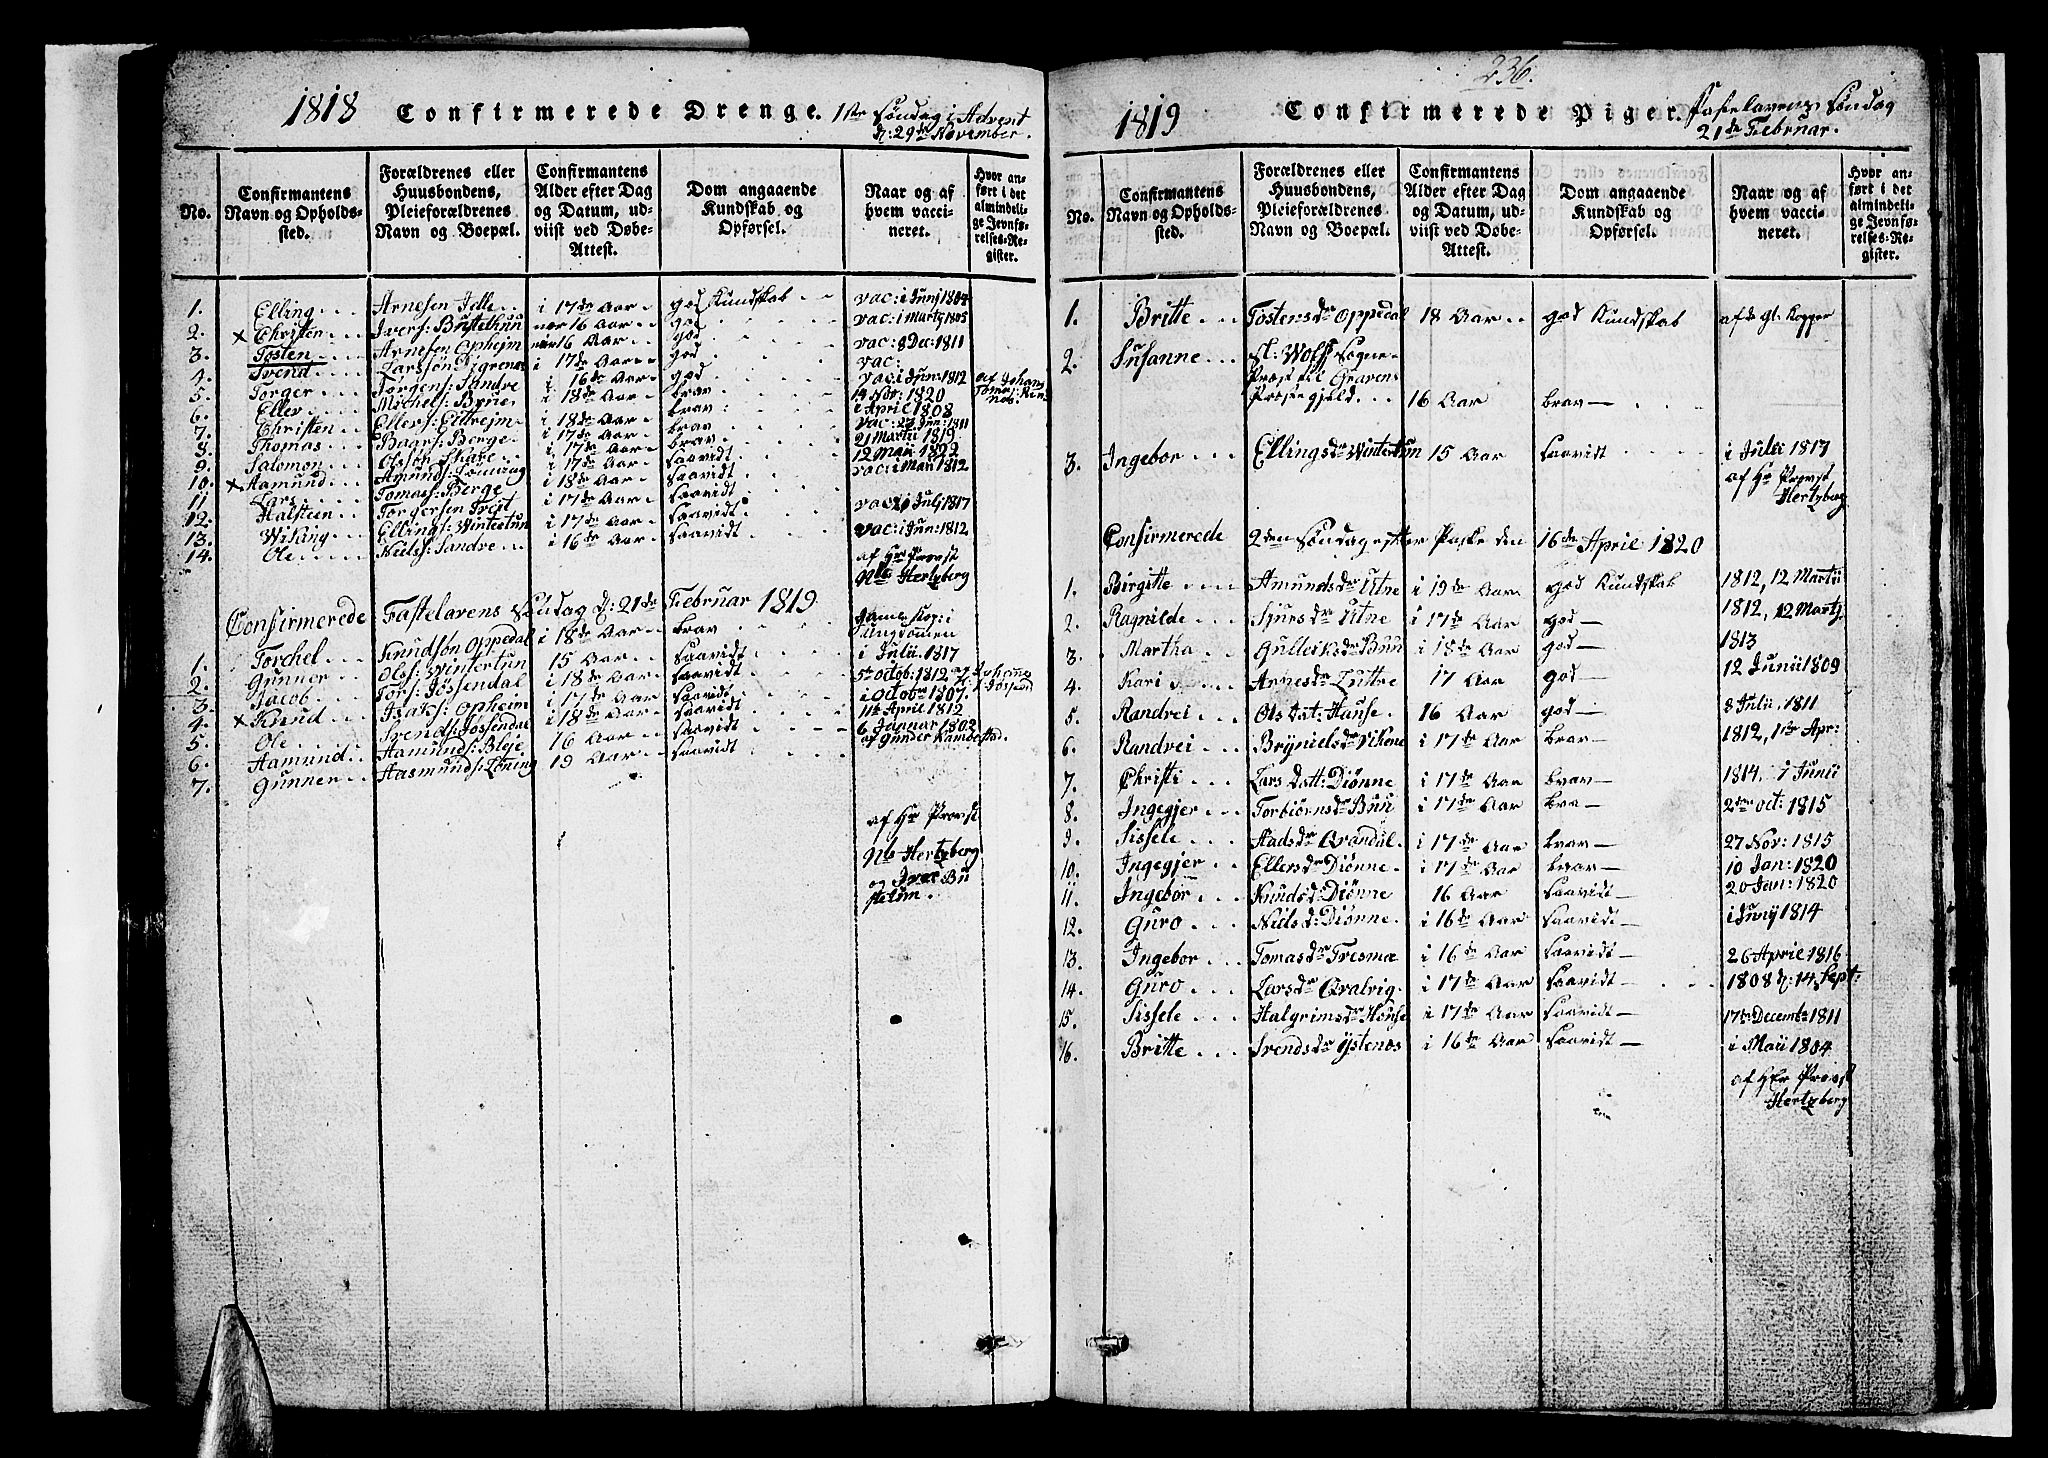 1818 Confirmerede Drenge. 1ste Søndag i Advent
d: 29de November.
No.
Confirmantens Navn og Opholdssted.
Forældrenes eller Huusbondens, Pleieforældrenes Navn og Boepæl.
Confirmantens Alder efter Dag og Datum, udviist ved Døbe-Attest.
Dom angaaende Kundskab og Opførsel.
Naar og af hvem vaccineret.
Hvor anført i det almindelige Jevnførelses-Register.
1. Elling Arnesen Jdle i 17de Aar god Kundskab vac: i Junj 1804
2. × Christen Ivers: Büstethün nær 16 Aar god vac: i Martz 1805
3. Tosten Arnesen Opheim nær 16 Aar god vac: 8 Dec: 1811
4. Svend Larssøn i 17de Aar god vac:
5. Torger Jørgens: Sandre i 16de Aar god vac: i Jun: 1812 af Johans
6. Eller Michels: Brüe i 18de Aar brav 14 Nov: 1820
7. Christen Ellers: Eitrejm i 18de Aar brav i April 1808
8. Thomas Baars: Berge i 17de Aar brav vac: 27 Jun: 1811
9. Salomon Olsøn Skare i 17de Aar brav 21 Martii 1819
10. × Aamund Amunds: Lønning i 17de Aar saavidt 12 Mari 1822
11 Lars Tomass: Berge i 18de Aar saavidt vac: i Mari 1812
12. Halsteen Torgersen Freit i 17de Aar saavidt
13. Wiking Ellings: Wintertun i 17de Aar saavidt vac: i Julj 1817
14. Ole Niels: Sandre i 16de Aar saavidt vac: i Jun: 1812
af Hr Provst
Nls Hertzberg
Confirmerede Fastelavens Søndag d: 21de Februar 1819.
1. Torchel Knudsøn Oppedal i 18de Aar brav game Kop: i Ungdommen
2. Gunner Ols: Wintertun 15 Aar saavidt i Julii 1817
3. Jacob Tors: Jøssendal i 18de Aar saavidt 5te Octob: 1812
4. × Knud Isaks: Opheim i 17de Aar saavidt i Octobr 1807.
5. Ole Svends: Jøssendal i 18de Aar saavidt 11te April 1812
6. Aamund Aamunds: Bleje 16 Aar saavidt 6 Januar 1802
7. Gunner Aasmunds: Løning 19 Aar saavidt af Gunder
af Hr Provst
Nls Hertzberg
og Ivar Bü
stetün.
236.
1819 Confirmerede Piger. Fastelavens Søndag
21de Februar.
No.
Confirmantens Navn og Opholdssted.
Forældrenes eller Huusbondens, Pleieforældrenes Navn og Boepæl.
Confirmantens Alder efter Dag og Datum, udviist ved Døbe-Attest.
Dom angaaende Kundskab og Opførsel.
Naar og af hvem vaccineret.
Hvor anført i det almindelige Jevnførelses-Register.
1. Britte Tostensdr Oppedal 18 Aar god Kundskab af de gl. Kopper
2. Susanne Sl: Wolff Sogne-
Præst til Gravens
Præstegjeld 16 Aar brav
3. Ingebor Ellingsdr Wintertun 15 Aar saavidt i Julii 1817
af Hr Provst
Hertzberg
Confirmerede 2den Søndag efter Paaske den 16de April 1820
1. Birgitte Amundsdr Utne i 19de Aar god Kundskab 1812, 12 Martii
2. Ragnilde Sjursdr Utne i 17de Aar god 1812, 12 Martz
3. Martha Gulleiksdr Büü i 18de Aar god 1813
4. Kari Arnesdr Lüttre 17 Aar god 12 Junii 1809
5. Randvei Ols Dat: Hause 16 Aar god 8 Julii 1811
6. Randvei Brÿnielsdr Vikene i 17de Aar brav 1812, 1ste Apr:
7. Christi Lars Datt: Diønne i 17de Aar brav 1814, 7 Junii
8. Ingegjer Torbiørnsdr Büü i 17de Aar bra 2den oct: 1815
9. Sissele Aadsdr Qvandal i 17de Aar brav 27 Nov: 1815
10. Ingegjer Ellersdr Diønne i 17de Aar brav 10 Jan: 1820
11. Ingebor Knudsd: Diønne 16 Aar saavidt 20 Jan: 1820
12. Guro Nielsd: Diønne i 16de Aar saavidt i Junÿ 1814
13. Ingebor Tomasdr Tresmæ i 16de Aar saavidt 26 April 1816
14. Guro Larsdr Qvalvig i 17de Aar saavidt 1808 d: 14 Sept:
15. Sissele Halgrimsdr House i 17de Aar saavidt 17de Decembr 1811
16. Britte Svendsdr Ystenæs i 16de Aar saavidt i Maii 1804
af Hr Provst
Hertzberg